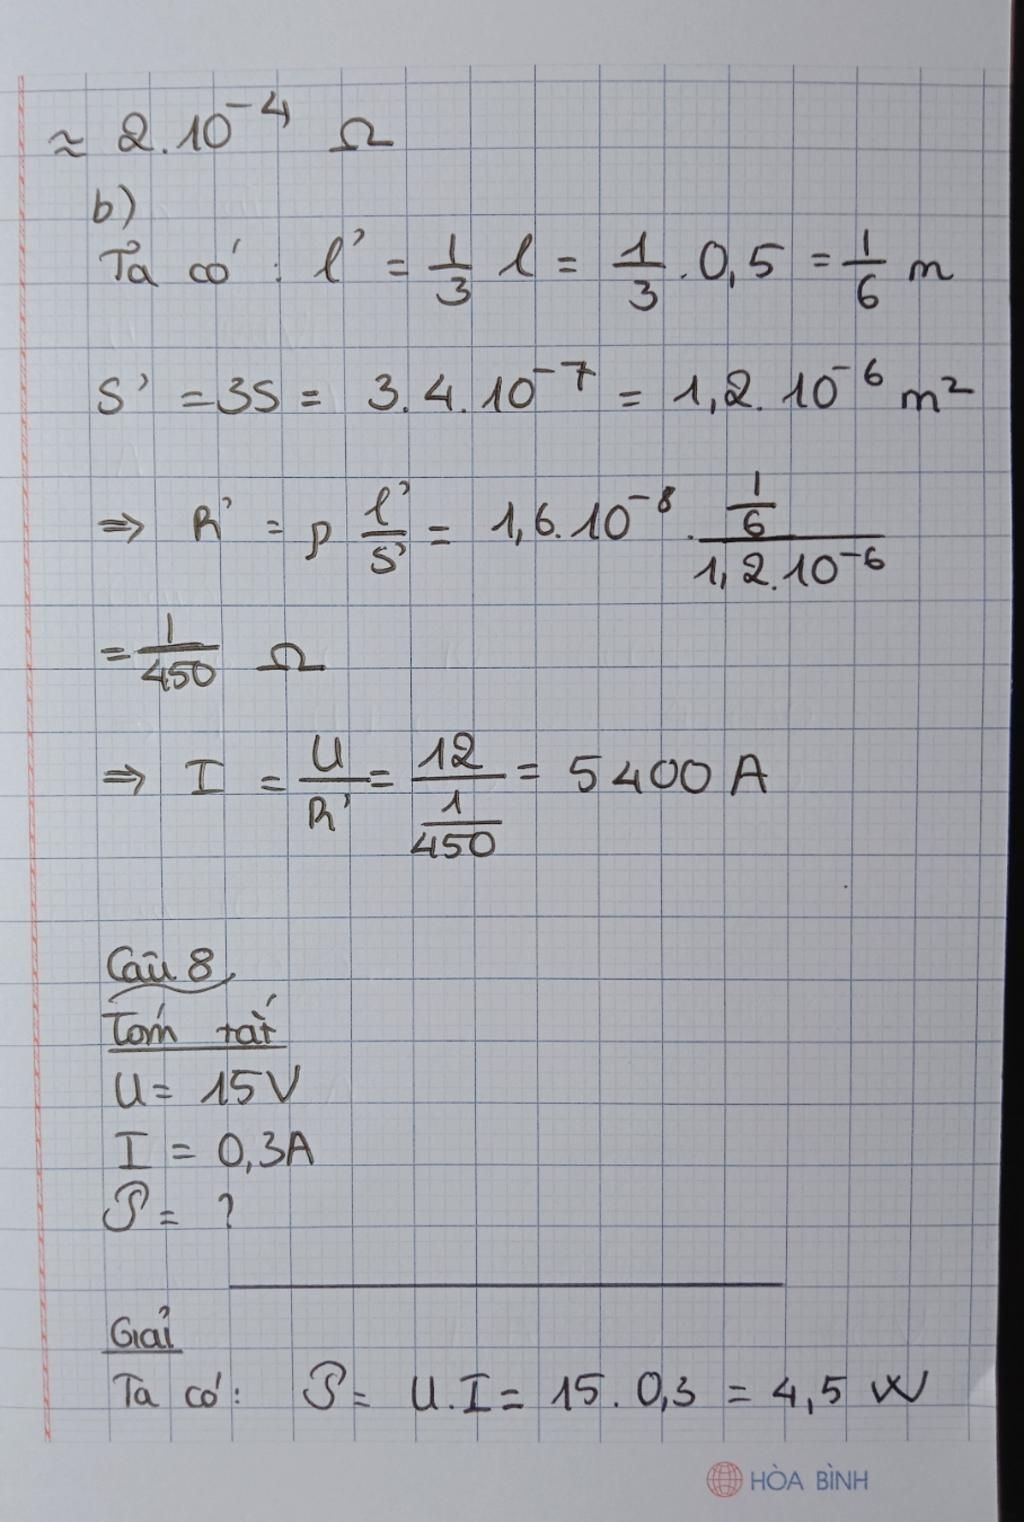 ≈ 2.10⁻⁴ Ω
b)
Ta có: l' = 1/3 l = 1/3 . 0,5 = 1/6 m
S' = 3S = 3.4.10⁻⁷ = 1,2.10⁻⁶ m²
⇒ R' = ρ l'/S' = 1,6.10⁻⁸ . (1/6)/(1,2.10⁻⁶)
= 1/450 Ω
⇒ I = U/R' = 12/(1/450) = 5400 A
Câu 8
Tóm tắt
U = 15V
I = 0,3A
P = ?
Giải
Ta có: P = U.I = 15.0,3 = 4,5 W
HÒA BÌNH